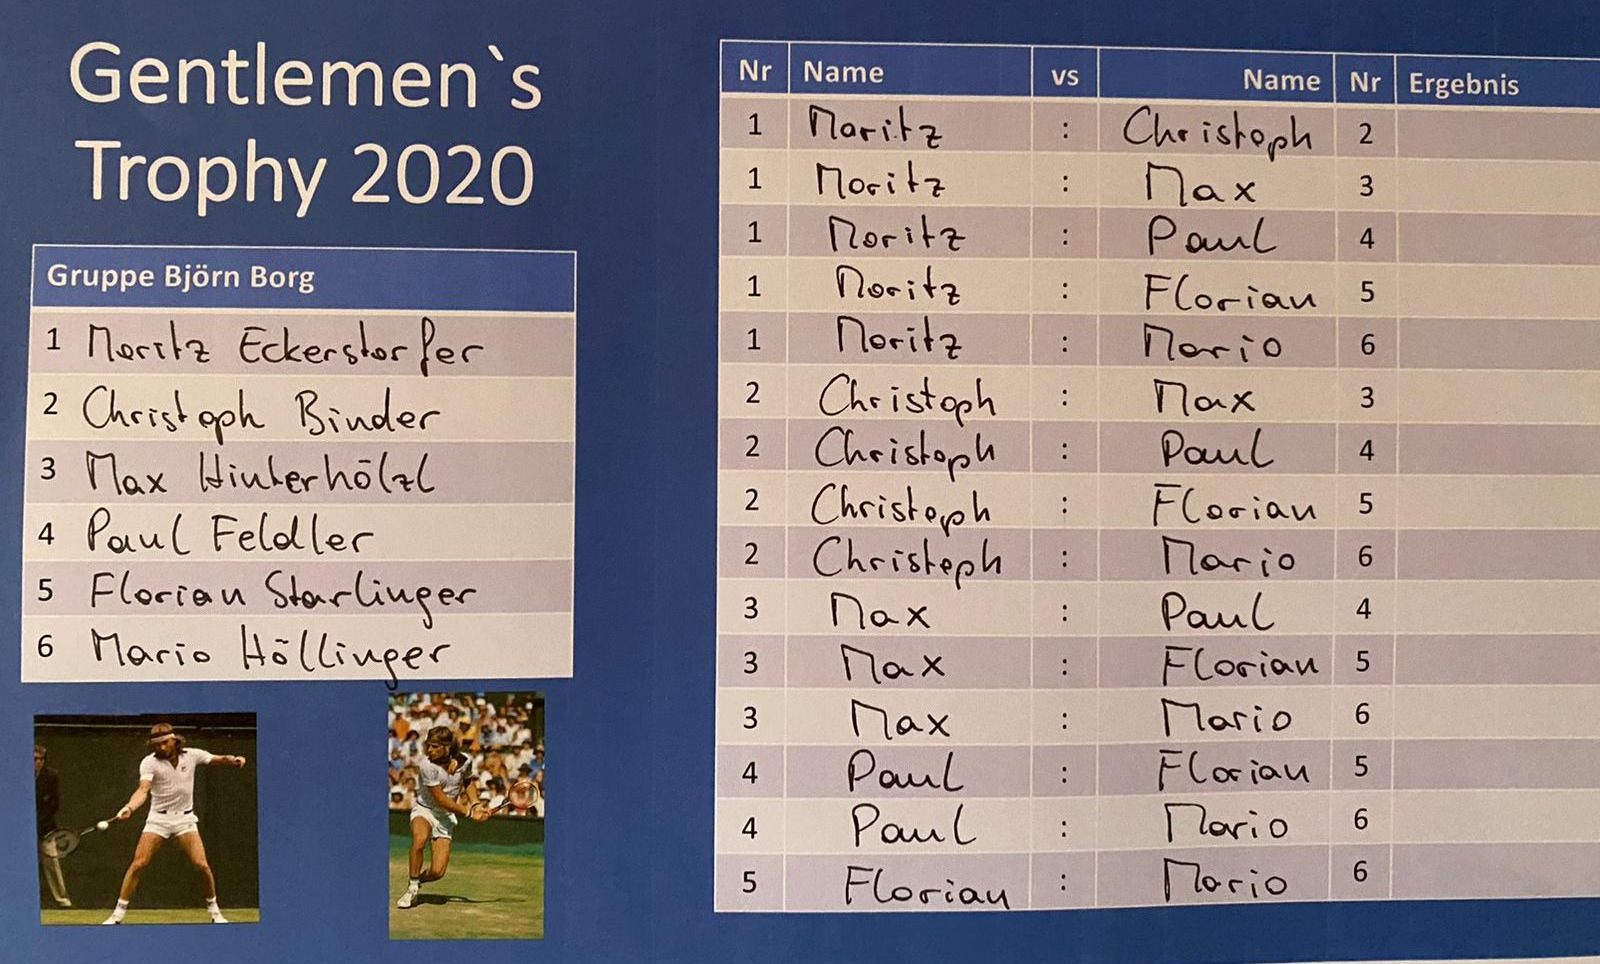 Gentlemen`s
Trophy 2020
Gruppe Björn Borg
1 Moritz Eckerstorfer
2 Christoph Binder
3 Max Hinterhölzl
4 Paul Feldler
5 Florian Starlinger
6 Mario Höllinger
Nr Name vs Name Nr Ergebnis
1 Moritz : Christoph 2
1 Moritz : Max 3
1 Moritz : Paul 4
1 Moritz : Florian 5
1 Moritz : Mario 6
2 Christoph : Max 3
2 Christoph : Paul 4
2 Christoph : Florian 5
2 Christoph : Mario 6
3 Max : Paul 4
3 Max : Florian 5
3 Max : Mario 6
4 Paul : Florian 5
4 Paul : Mario 6
5 Florian : Mario 6